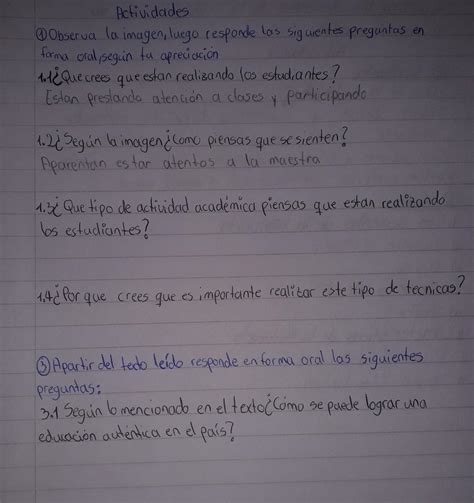 Actividades
① Observa la imagen, luego responde las siguientes preguntas en
forma oral, según tu apreciación
1.1 ¿Que crees que estan realizando los estudiantes?
Estan prestando atención a clases y participando
1.2 ¿Según la imagen ¿Como piensas que se sienten?
Aparentan estar atentos a la maestra
1.3 ¿Que tipo de actividad académica piensas que estan realizando
los estudiantes?
1.4 ¿Por que crees que es importante realizar este tipo de tecnicas?
③ Apartir del texto leído responde en forma oral las siguientes
preguntas:
3.1 Según lo mencionado en el texto ¿Cómo se puede lograr una
educación auténtica en el país?